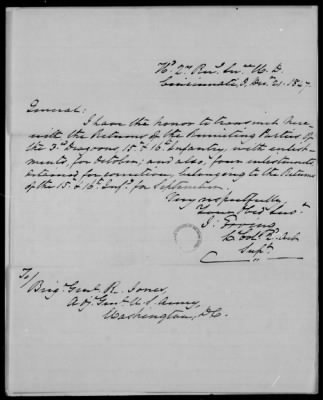 Hd. Qrs. Rec. Ser. W. D.
Cincinnati, O, Decr. 21. 1847.
General:
I have the honor to transmit here-
with the Returns of the Recruiting Parties of
the 3d. Dragoons, 15. & 16. Infantry, with enlist-
ments, for October; and also, four enlistments,
returned for correction, belonging to the Returns
of the 15. & 16. Infy. for September.
Very respectfully
Your Obd. Servt.
J. Erving
Lt Col. 2. Arty
Supt.
To/
Brigr. Genl. R. Jones,
Adj. Genl. U.S. Army,
Washington, D.C.